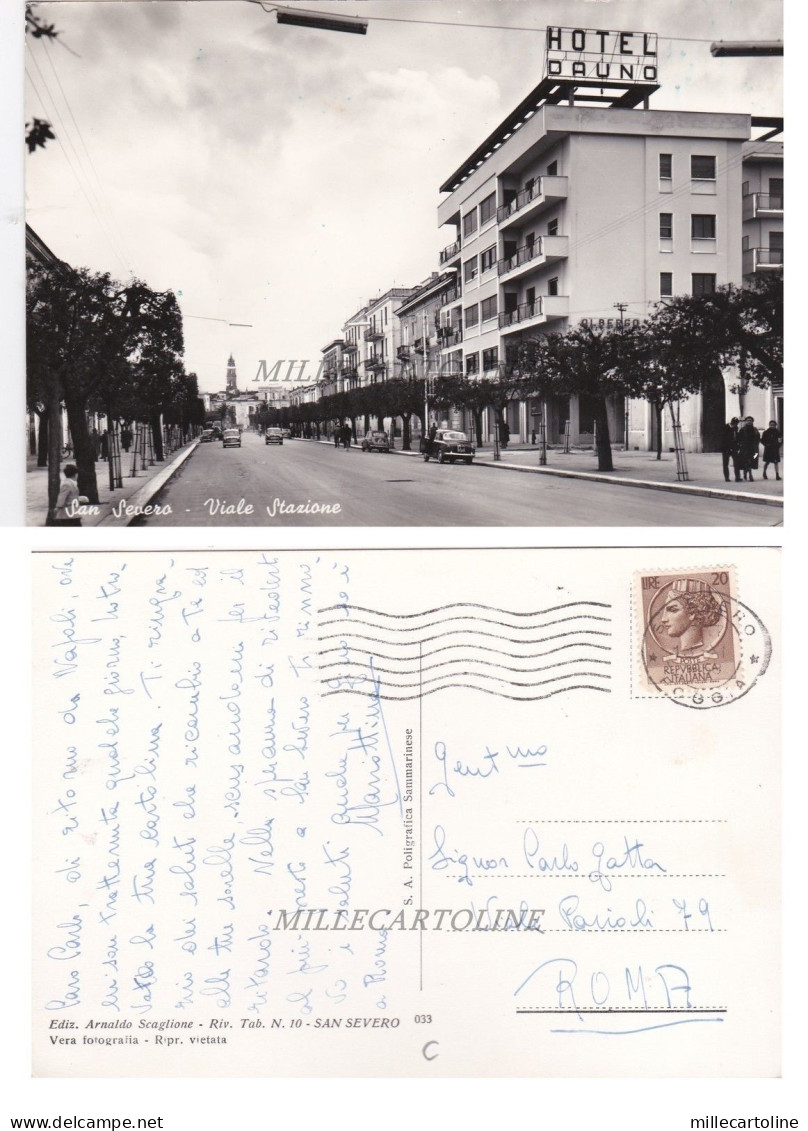 HOTEL
DAUNO
ALBERGO
MILLECARTOLINE
San Severo - Viale Stazione
Caro Carlo, di ritorno da Napoli, ove
mi son trattenuta qualche giorno, ho tro-
vato la tua cartolina. Ti ringra-
zio dei saluti che ricambio a Te ed
alle tue sorelle, scusandomi per il
ritardo. Nella speranza di rivederti
al più presto a San Severo ti rinno-
vo i saluti
a Roma.
S. A. Poligrafica Sammarinese
LIRE 20
REPUBBLICA
ITALIANA
Gent mo
Signor Carlo Gatta
Viale Parioli 79
ROMA
MILLECARTOLINE
Ediz. Arnaldo Scaglione - Riv. Tab. N. 10 - SAN SEVERO
033
Vera fotografia - Ripr. vietata
C
millecartoline